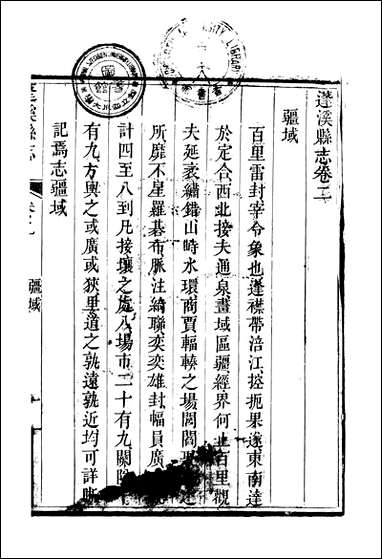 蓬溪縣志卷二
疆域
百里雷封宰令象也蓬襟帶涪江控扼果遂東南達
於定合西北接夫通泉畫域區疆經界何止百里觀
夫延袤繡錯山峙水環商賈輻輳之場閭閻
所靡不星羅碁布脈注綺聯奕奕雄封幅員廣
計四至八到凡接壤之處八場市二十有九關隘
有九方輿之或廣或狹里道之孰遠孰近均可詳晰
記焉志疆域
蓬溪縣志
疆域